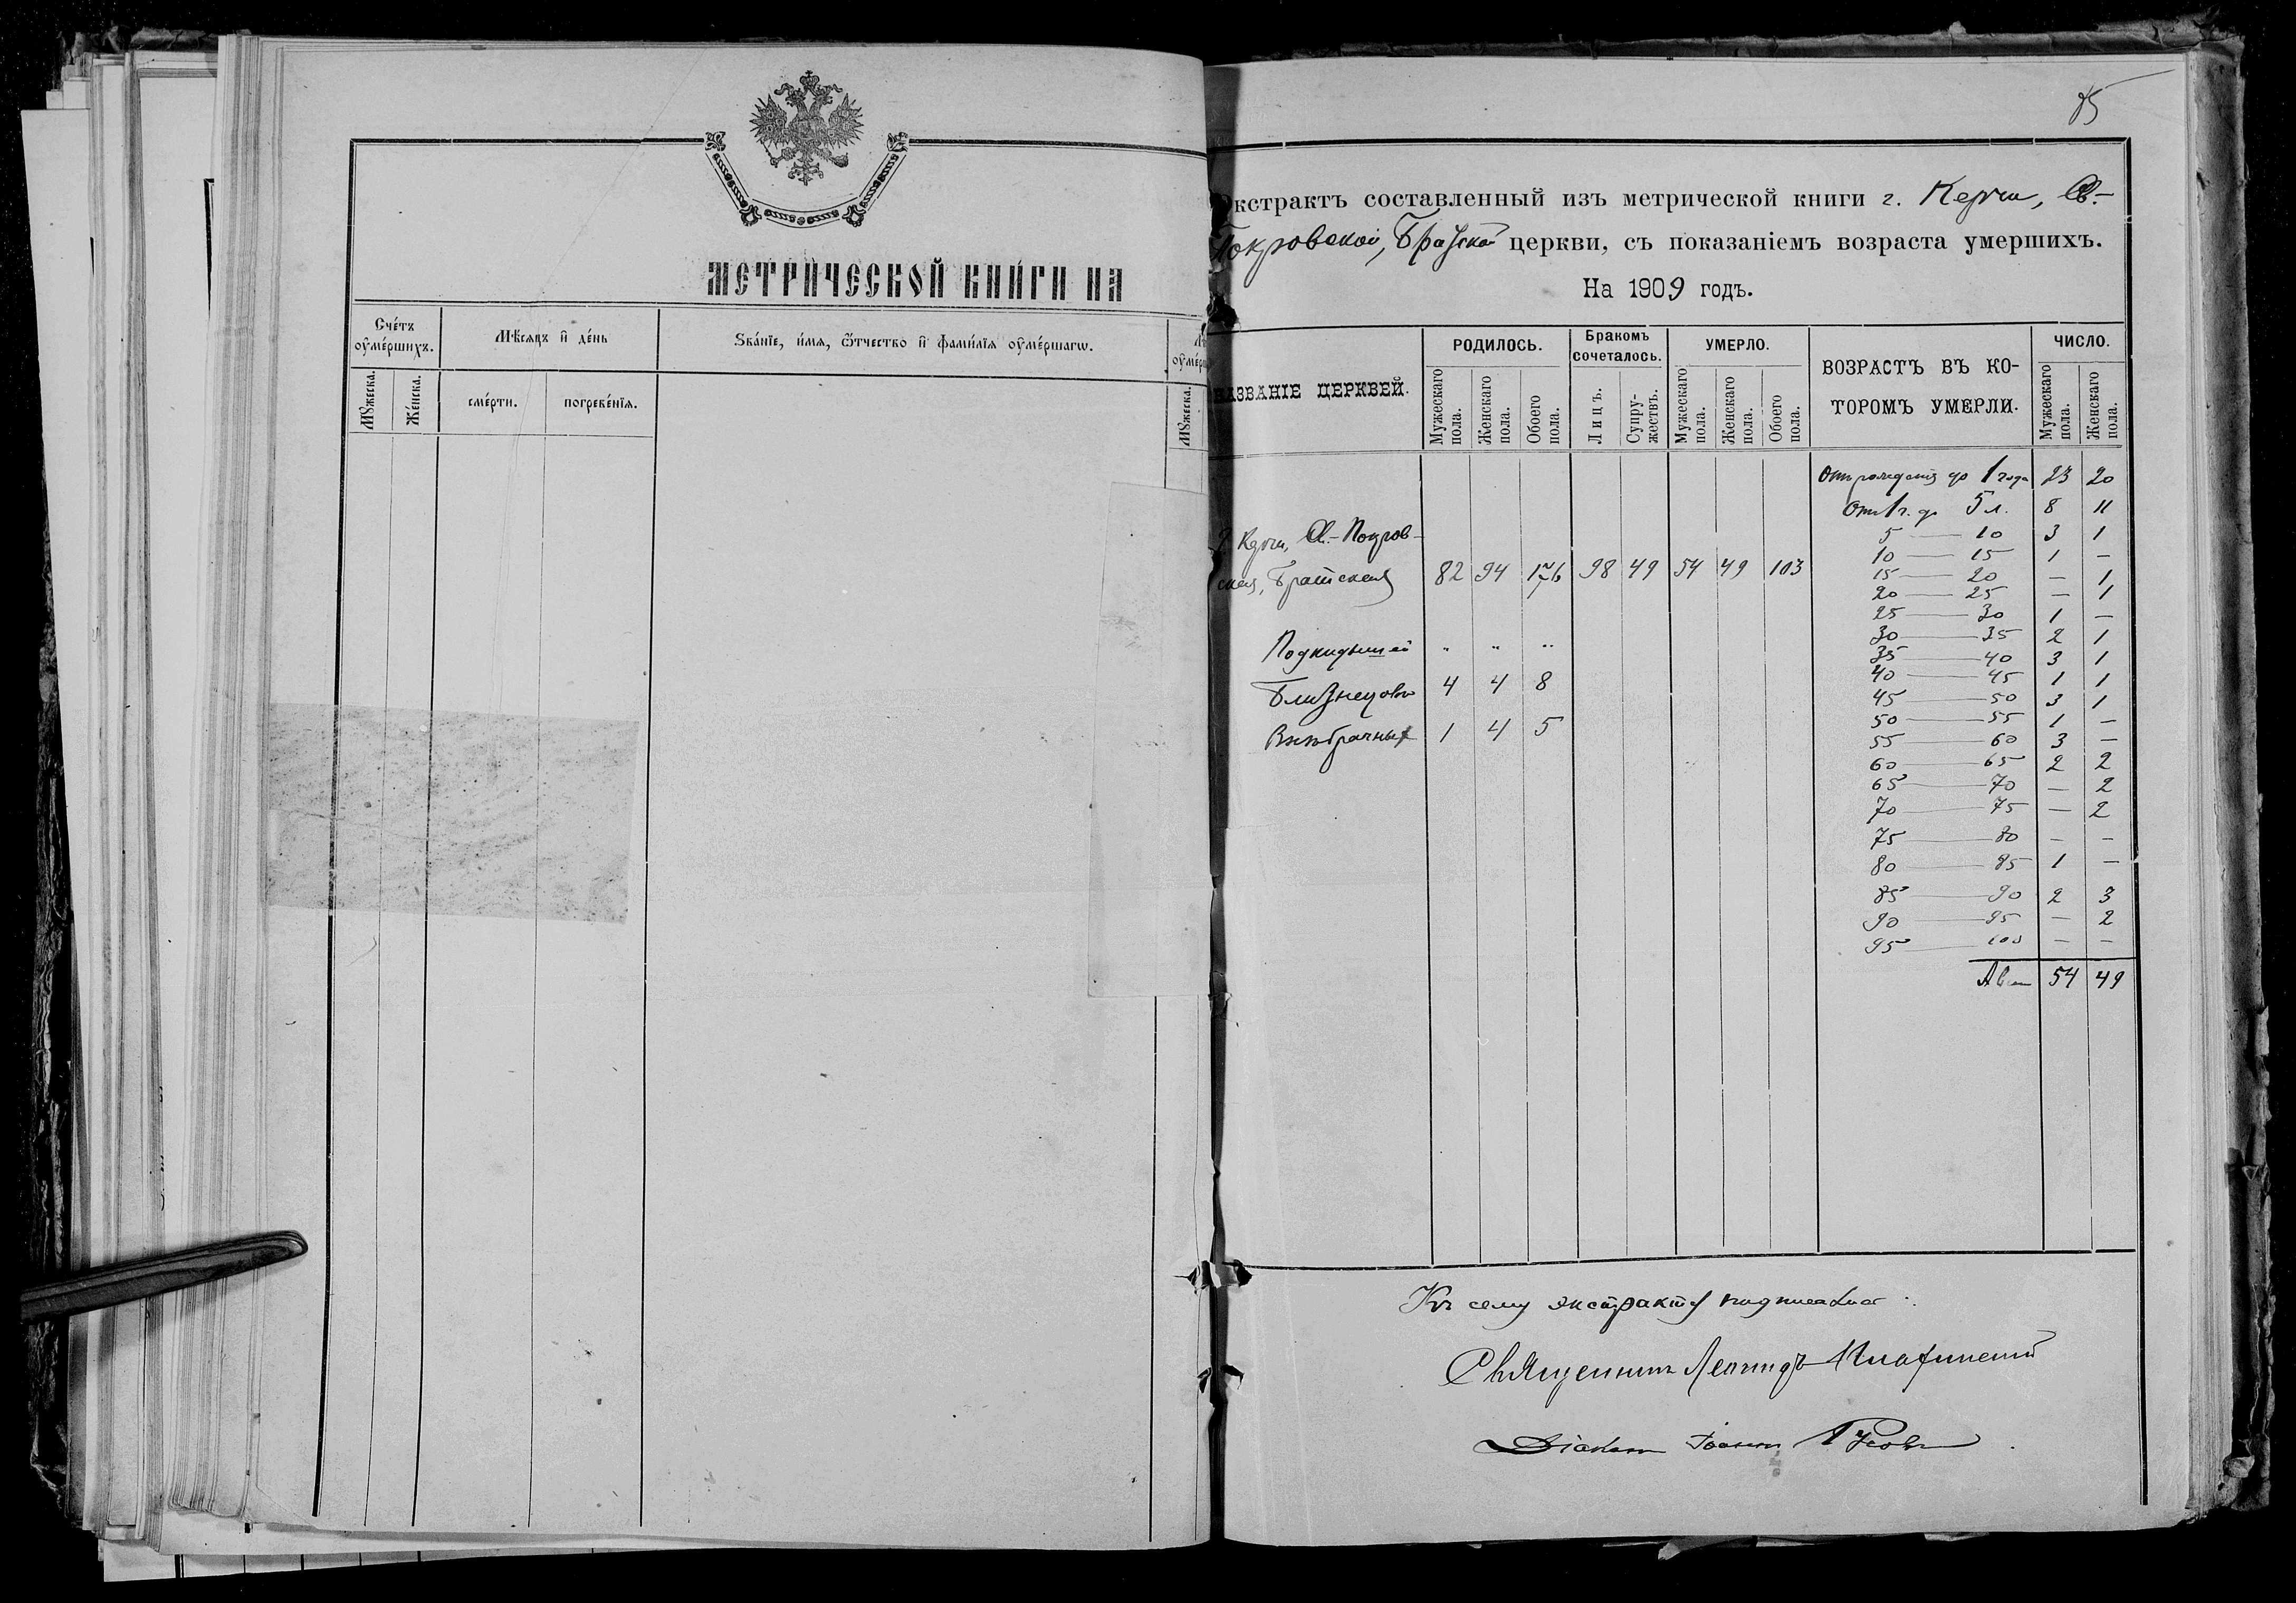 МЕТРИЧЕСКОЙ КНИГИ НА
Сче́тъ оумéршихъ.
Мѣ́сяцъ и҆ де́нь
Ѕва́нїе, и҆́мѧ, ѻ҆́тчество и҆ фами́лїѧ оумéршагѡ.
Мꙋ́жеска.
Же́нска.
сме́рти.
погребе́нїѧ.
Мꙋ́жеска.
85
Экстрактъ составленный изъ метрической книги г. Керчи, Св.-
Покровской, Братской церкви, съ показаніемъ возраста умершихъ.
На 1909 годъ.
НАЗВАНІЕ ЦЕРКВЕЙ.
РОДИЛОСЬ.
Бракомъ сочеталось.
УМЕРЛО.
ВОЗРАСТЪ ВЪ КО-
ТОРОМЪ УМЕРЛИ.
ЧИСЛО.
Мужескаго пола.
Женскаго пола.
Обоего пола.
Лицъ.
Супру-жествъ.
Мужескаго пола.
Женскаго пола.
Обоего пола.
Мужескаго пола.
Женскаго пола.
Г. Керчи, Св.-Покров-
ская, Братская 82 94 176 98 49 54 49 103
Подкидышей " " "
Близнецовъ 4 4 8
Внѣбрачныхъ 1 4 5
Отъ рожденія до 1 года 23 20
Отъ 1 г. до 5 л. 8 11
5 — 10 3 1
10 — 15 1 —
15 — 20 — 1
20 — 25 — 1
25 — 30 1 —
30 — 35 2 1
35 — 40 3 1
40 — 45 1 1
45 — 50 3 1
50 — 55 1 —
55 — 60 3 —
60 — 65 2 2
65 — 70 — 2
70 — 75 — 2
75 — 80 — —
80 — 85 1 —
85 — 90 2 3
90 — 95 — 2
95 — 100 — —
А всего 54 49
Къ сему экстракту подписались:
Священникъ Леонидъ
Діаконъ Іоаннъ